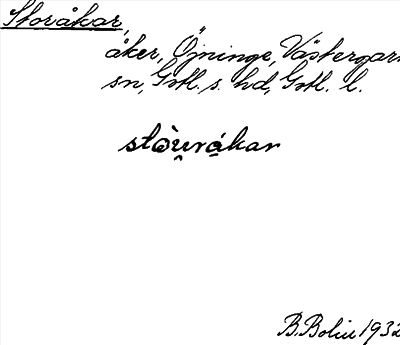 Storåkar,
åker, Öjninge, Västergarn
sn, Gotl. s. hd, Gotl. l.
stòu̯rákar
B. Bolin 1932